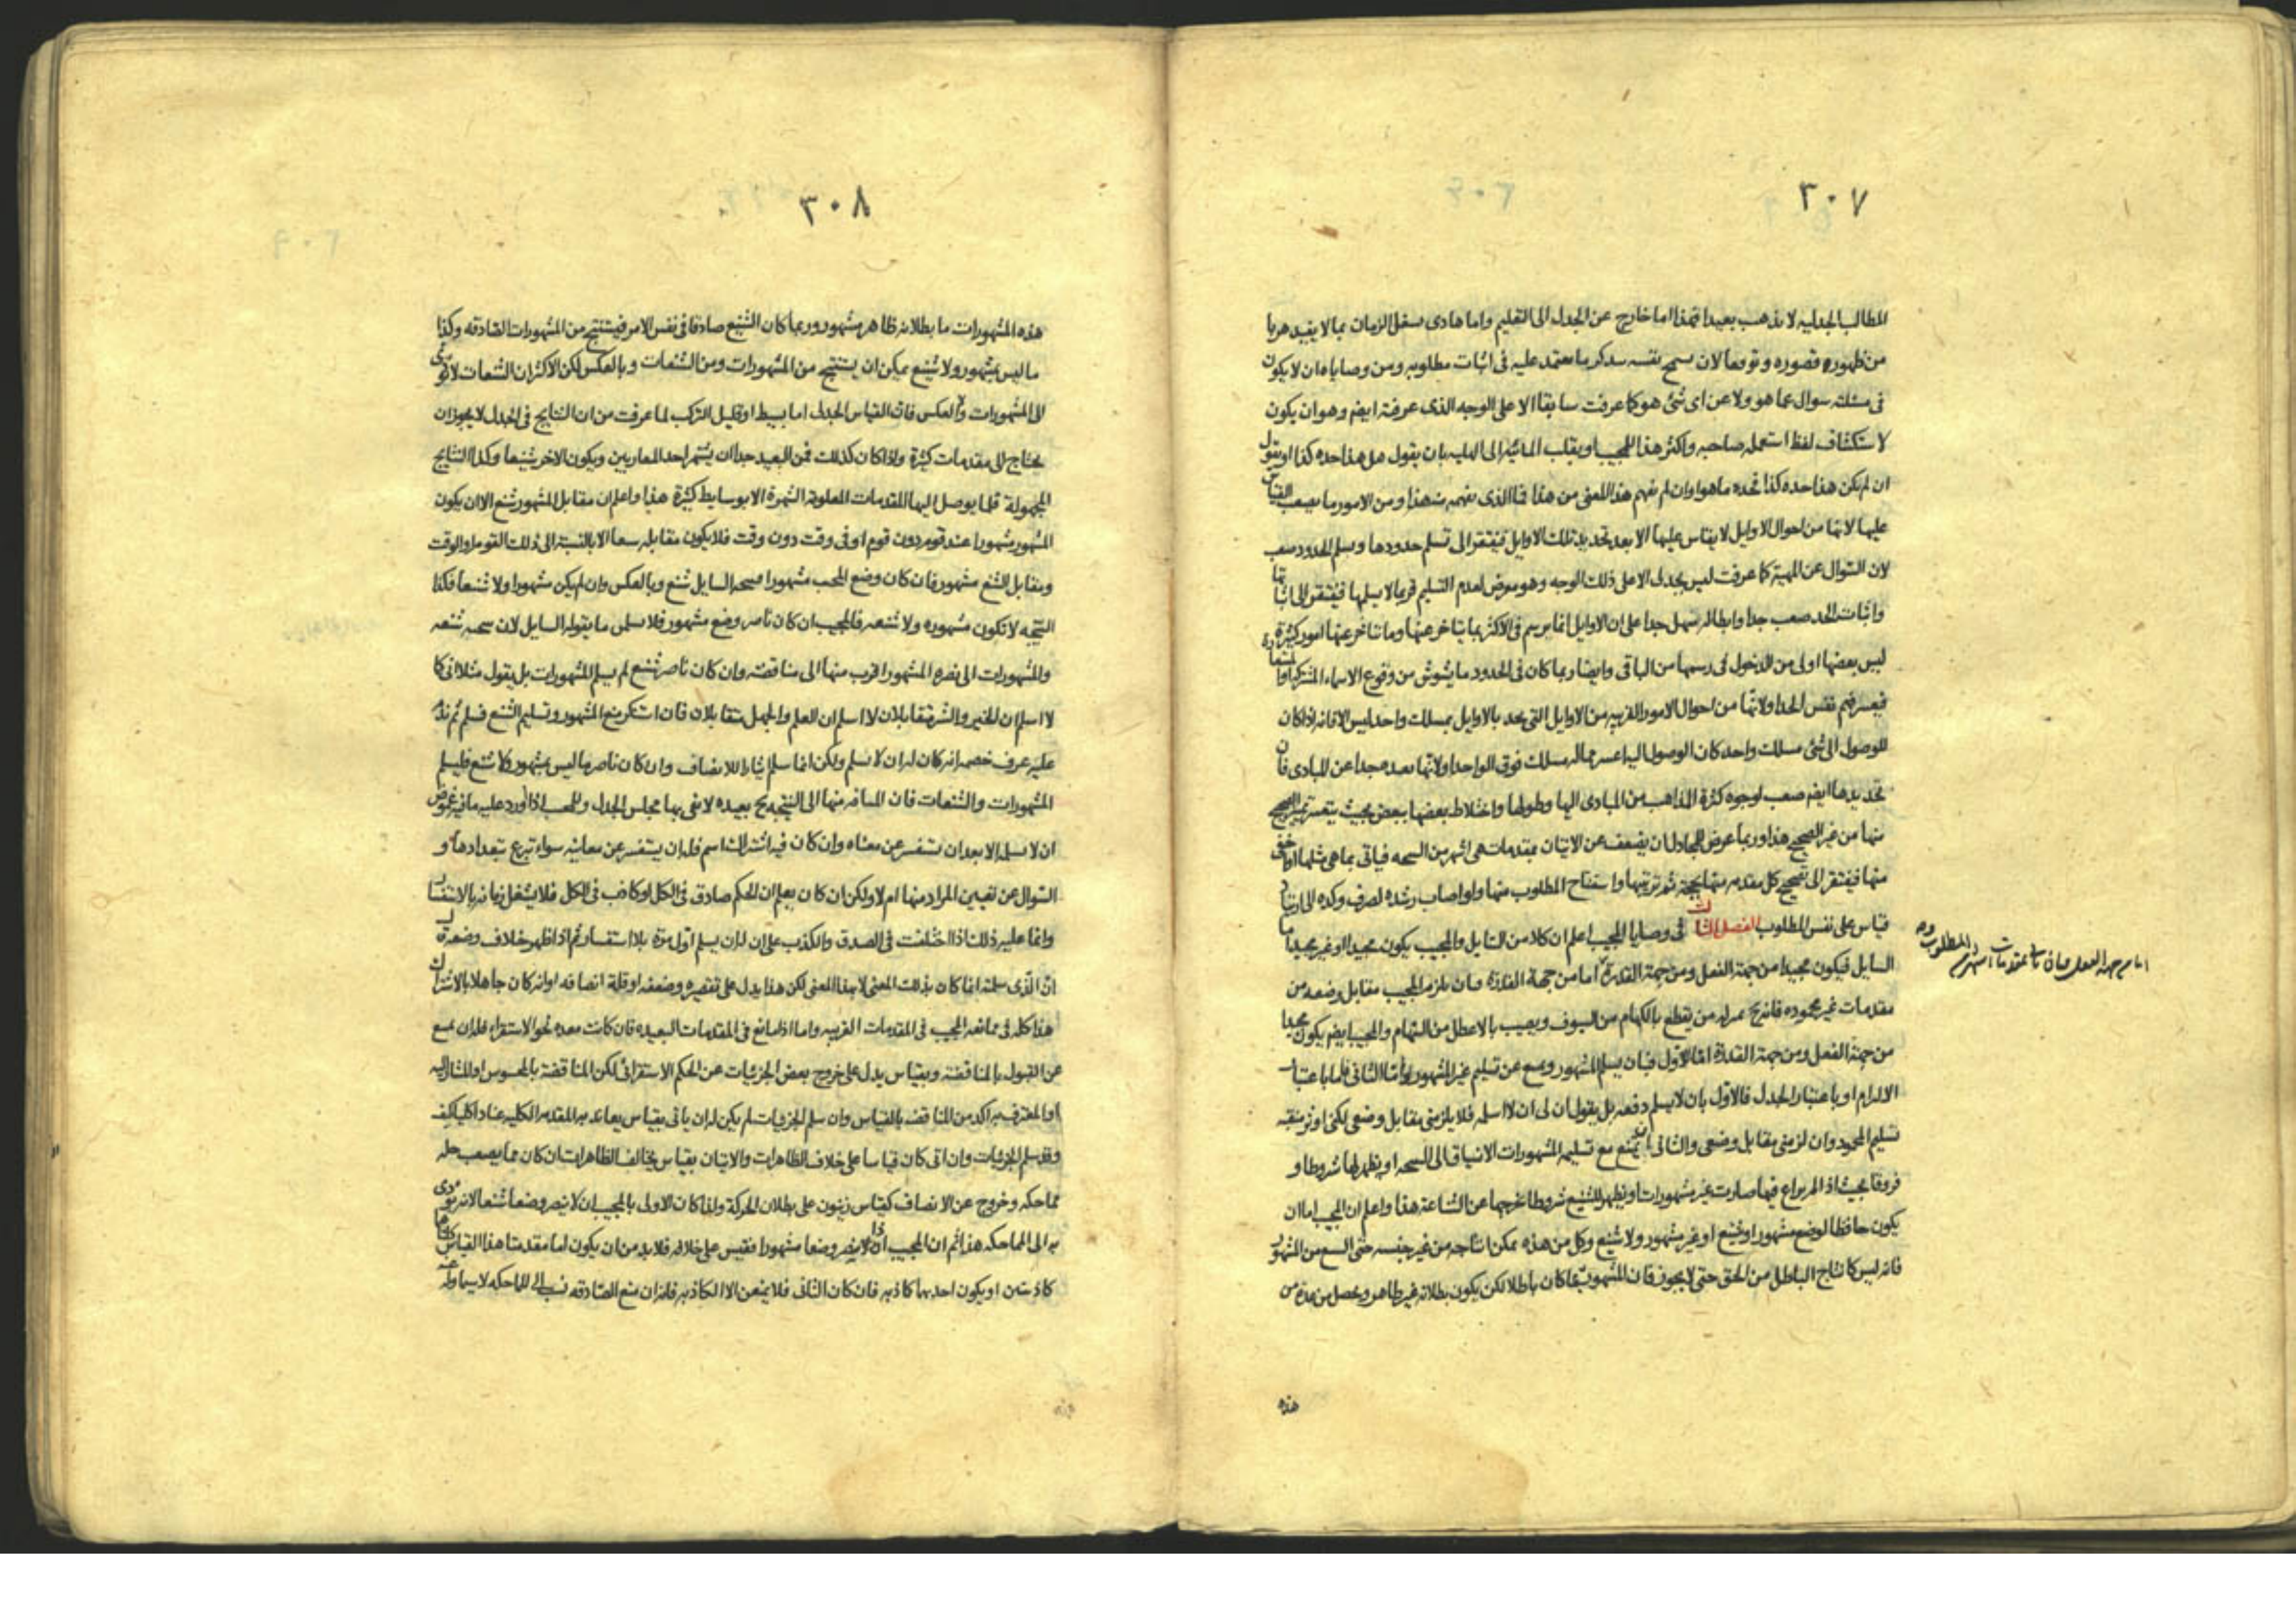 ٣٠٧
المطالب الجدلية لا يذهب بعيدا فهذا اما خارج عن الجدل الى التعليم واما هاذى يشغل الزمان بما لا يفيد هربا
من ظهور قصوره وتوقعا لان نفسه معتمد عليه فى اثبات مطلوبه ومن وصاياه ان لا يكون
فى مسئلته سوال عما هو ولا عن اى شئ هو كما عرفت سابقا الا على الوجه الذى عرفته ايضم وهو ان يكون
لاستكشاف لفظ استعمله صاحبه واكثر هذا للمجيب او يقلب المائية الى الهلية بان يقول هل هذا حده كذا او يقول
ان لم يكن هذا حده كذا فحده ماهو او ان لم تفهم هذا المعنى من هذا فما الذى تفهمه منه هذا ومن الامور ما يصعب القياس
عليها لانها من احوال الاوايل لا يقاس عليها الا بعد تحديد تلك الاوايل فيفتقر الى تسلم حدودها وتسلم الحدود صعب
لان السوال عن المهية كما عرفت ليس بجدلى الا على ذلك الوجه وهو معرض لعدم التسليم فربما لا يسلمها فيفتقر الى اثباتها
واثبات الحد صعب جدا وابطاله سهل جدا على ان الاوايل انما يرسم فى الاكثر بما يتاخر عنها وما يتاخر عنها امور كثيرة
ليس بعضها اولى من الدخول فى رسمها من الباقى وايضا ربما كان فى الحدود ما يشوش من وقوع الاسماء المشتركة او المستعارة
فيعسر فهم نفس الحد اولانها من احوال الامور القريبه من الاوايل التى تحد بالاوايل بمسلك واحد ليس الا فانه اذا كان
للوصول الى شئ مسلك واحد كان الوصول اليه اعسر مما له مسلك فوق الواحد اولانها بعيده جدا عن المبادى فان
تحديدها ايضم صعب لوجوه كثرة المذاهب من المبادى اليها وطولها واختلاط بعضها ببعض بحيث يتعسر تميز الصحيح
منها من غير الصحيح هذا وربما عرض للمجادل ان يضعف عن الاتيان بمقدمات هى اشهر من النتيجه فياتى بما هى مثلها او اخفى
منها فيفتقر الى تصحيح كل مقدمه منها بحجة ثم ترتيبها واستنتاج المطلوب منها ولو اصاب رشده لصرف وكده الى ارتياد
قياس على نفس المطلوب الفصل الثالث فى وصايا المجيب اعلم ان كلا من السايل والمجيب يكون مجيدا او غير مجيد اما
السايل فيكون مجيدا من جهة الفعل ومن جهة القدرة اما من جهة القدرة فبان يلزم المجيب مقابل وضعه من
مقدمات غير محموده فانه بمنزله من يقطع بالكهام من السيوف ويصيب بالاعطل من السهام والمجيب ايضم يكون مجيدا
من جهة الفعل ومن جهة القدرة اما الاول فبان يسلم المشهور ويمنع عن تسليم غير المشهور واما الثانى فاما باعتبار
الالزام او باعتبار الجدل فالاول بان لا يسلم دفعه بل يقول ان لى ان لا اسلمه فلا يلزمنى مقابل وضعى لكنى اوثر منقبه
تسليم المحمود وان لزمنى مقابل وضعى والثانى ان يمنع مع تسليمه المشهورات الانسياق الى النتيجه او يظهر لها شروطا و
فروقا بحيث اذا لم يراع فيها صارت غير مشهورات او يظهر للشنيع شروطا تخرجها عن الشناعة هذا واعلم ان المجيب اما ان
يكون حافظا لوضع مشهور او شنيع او غير مشهور ولا شنيع وكل من هذه يمكن انتاجه من غير جنسه حتى الشنيع من المشهور
فانه ليس كانتاج الباطل من الحق حتى لا يجوز فان المشهور ربما كان باطلا لكن يكون بطلانه غير ظاهر ويحصل من عدة من
هذه
اما من جهة الفعل فبان ياتى بمقدمات اشهر من المطلوب
٣٠٨
هذه المشهورات ما بطلانه ظاهر مشهور وربما كان الشنيع صادقا فى نفس الامر فيستنتج من المشهورات الصادقه وكذا
ما ليس بمشهور ولا شنيع يمكن ان يستنتج من المشهورات ومن الشنعات وبالعكس لكن الاكثر ان الشنعات لا تؤدى
الى المشهورات ولا العكس فان القياس الجدلى اما بسيط او قليل التركيب لما عرفت من ان النتايج فى الجدل لا يجوز ان
يحتاج الى مقدمات كثيرة واذا كان كذلك فمن البعيد جدا ان يشتهر احد المتقاربين ويكون الاخر شنيعا وكذا النتايج
المجهولة قلما يوصل اليها المقدمات المعلومة الشهرة الا بوسايط كثيرة هذا واعلم ان مقابل المشهور شنع الا ان يكون
المشهور مشهورا عند قوم دون قوم او فى وقت دون وقت فلا يكون مقابله شنعا الا بالنسبة الى ذلك القوم او الوقت
ومقابل الشنع مشهور فان كان وضع المجيب مشهورا فنتيجه السايل شنع وبالعكس وان لم يكن مشهورا ولا شنعا فكذا
النتيجه لا تكون مشهوره ولا شنعه فالمجيب ان كان ناصر وضع مشهور فلا يسلمن ما يقوله السايل لان نتيجته شنعه
والمشهورات الى نصره المشهور اقرب منها الى مناقضته وان كان ناصر شنع لم يسلم المشهورات بل يقول مثلا انى كما
لا اسلم ان الخير والشر متقابلان لا اسلم ان العلم والجهل متقابلان فان استنكر منع المشهور وتسليم الشنع فسلم ثم ندم
عليه عرف خصمه انه كان له ان لا يسلم ولكن انما سلم ايثارا للانصاف وان كان ناصر ما ليس بمشهور ولا شنع فليسلم
المشهورات والشنعات فان المسافه منها الى النتيجه بعيده لا تفى بها مجلس الجدل وللمجيب اذا اورد عليه ما فيه غموض
ان لا يسلمه الا بعد ان يستفسر عن معناه وان كان فيه اشتراك اسم فله ان يستفسر عن معانيه سواء تبرع بتعدادها و
السوال عن تعيين المراد منها ام لا ولكن ان كان يعلم ان الحكم صادق فى الكل او كاذب فى الكل فلا يشغل زمانه بالاستفسار
وانما عليه ذلك اذا اختلفت فى الصدق والكذب على ان له ان يسلم اول مرة بلا استفسار ثم اذا ظهر خلاف وضعه قال
ان الذى سلمته انما كان بذلك المعنى لا بهذا المعنى لكن هذا يدل على تقصيره وضعفه او قلة انصافه او انه كان جاهلا بالاشتراك
هذا كله فى ممانعه المجيب فى المقدمات القريبه واما اذا مانع فى المقدمات البعيده فان كانت معده نحو الاستقراء فله ان يمنع
عن القبول بالمناقضة وبقياس يدل على خروج بعض الجزئيات عن الحكم الاستقرائى لكن المناقضة بالمحسوس او المشار اليه
او المعترف به اكد من المناقضه بالقياس وان سلم الجزئيات لم يكن له ان ياتى بقياس يعاند به المقدمه الكليه عنادا كليا كيف
وقد سلم الجزئيات وان اتى كان قياسا على خلاف الظاهرات والاتيان بقياس يخالف الظاهرات ان كان مما يصعب حله
مماحكه وخروج عن الانصاف كقياس زينون على بطلان الحركة ولذا كان الاولى بالمجيب ان لا ينصر وضعا شنعا لانه يؤدى
به الى المماحكه هذا ثم ان المجيب اذا لا ينصر وضعا مشهورا فقيس على خلافه فلا بد من ان يكون اما مقدمتا هذا القياس كلتاهما
كاذبتين او يكون احديهما كاذبه فان كان الثانى فلا يمنعن الا الكاذبه فانه ان منع الصادقه نسب الى المماحكه لا سيما